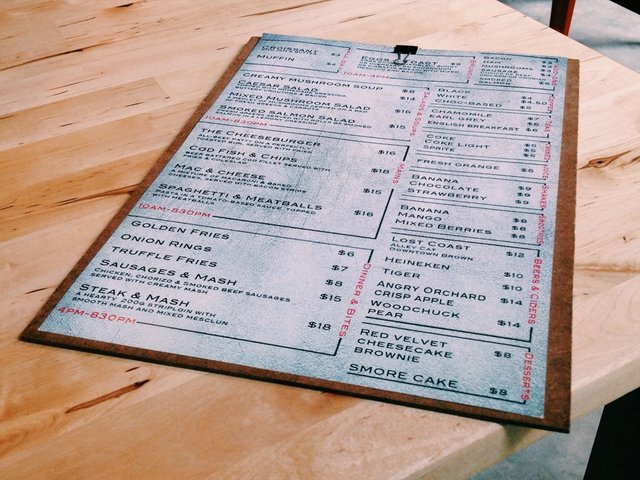 CROISSANT
MUFFIN
$4
10AM-4PM
CREAMY MUSHROOM SOUP $8
CAESAR SALAD $14
MIXED MUSHROOM SALAD $16
SMOKED SALMON SALAD $15
10AM-830PM
THE CHEESEBURGER $16
COD FISH & CHIPS $18
MAC & CHEESE $15
SPAGHETTI & MEATBALLS $16
10AM-830PM
MAINS
GOLDEN FRIES $6
ONION RINGS $7
TRUFFLE FRIES $8
SAUSAGES & MASH $15
CHICKEN, CHORIZO & SMOKED BEEF SAUSAGES
SERVED WITH CREAMY MASH
STEAK & MASH $18
A HEARTY 200G STRIPLOIN WITH
SMOOTH MASH AND MIXED MESCLUN
4PM-830PM
DINNER & BITES
BACON
BLACK
WHITE $4.50
CHOC-BASED
CHAMOMILE
EARL GREY
ENGLISH BREAKFAST $6
COKE
COKE LIGHT
SPRITE
FRESH ORANGE $6
BANANA $9
CHOCOLATE $9
STRAWBERRY $9
BANANA $8
MANGO $8
MIXED BERRIES $8
LOST COAST $12
ALLEY CAT
DOWNTOWN BROWN
HEINEKEN $10
TIGER $10
ANGRY ORCHARD $14
CRISP APPLE
WOODCHUCK $14
PEAR
BEERS & CIDERS
RED VELVET
CHEESECAKE $8
BROWNIE
SMORE CAKE $8
DESSERTS